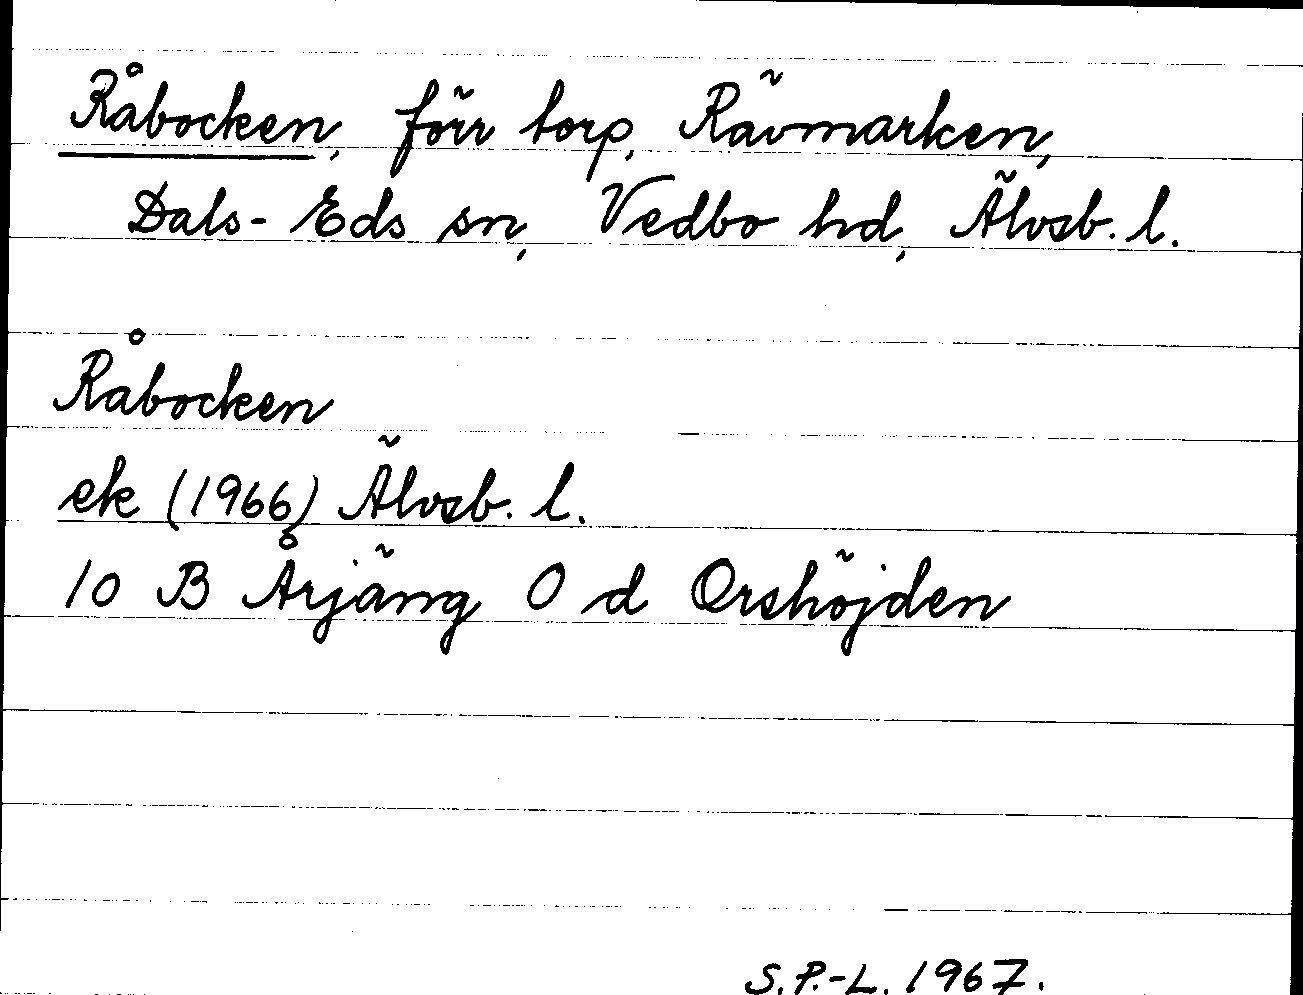 Råbocken, förr torp, Rävmarken,
Dals-Eds sn, Vedbo hd, Älvsb. l.
Råbocken
ek (1966) Älvsb. l.
10 B Årjäng 0 d Orshöjden
S.P.-L. 1967.